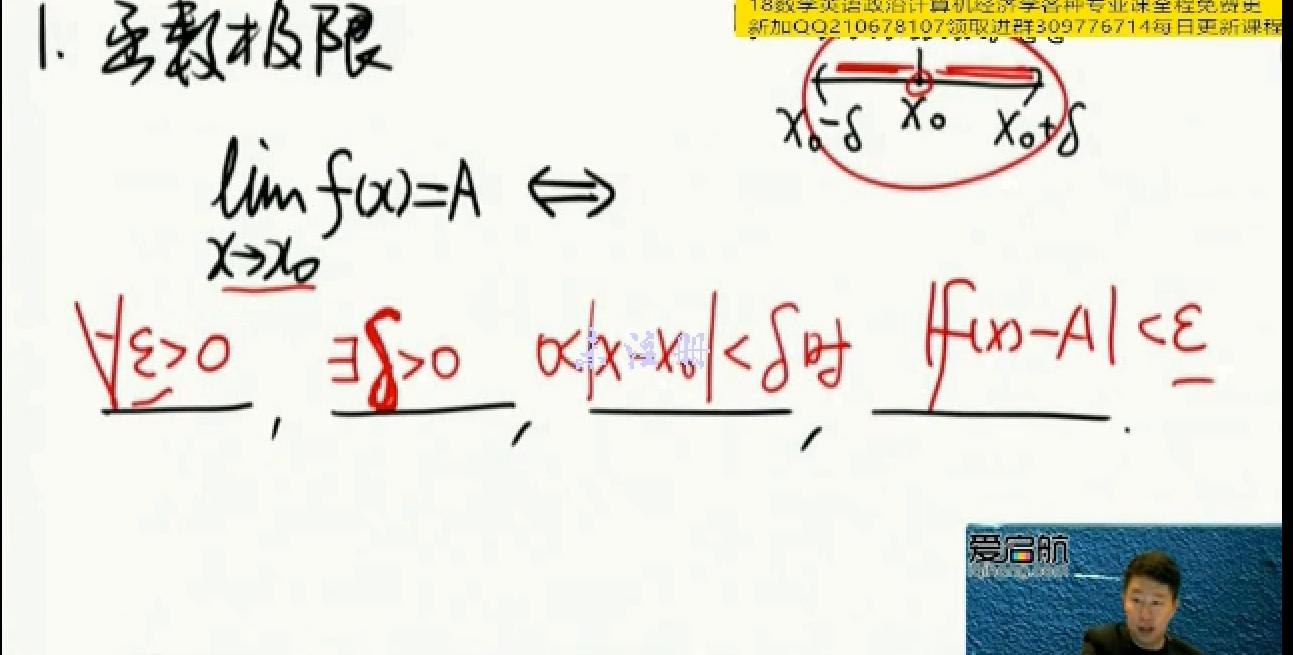 18数学英语政治计算机经济学各种专业课全程免费更
新加QQ210678107领取进群309776714每日更新课程
1. 函数极限
x₀-δ x₀ x₀+δ
lim f(x)=A ⇔
x→x₀
∀ε>0, ∃δ>0, 0<|x-x₀|<δ时, |f(x)-A|<ε.
未注册
爱启航